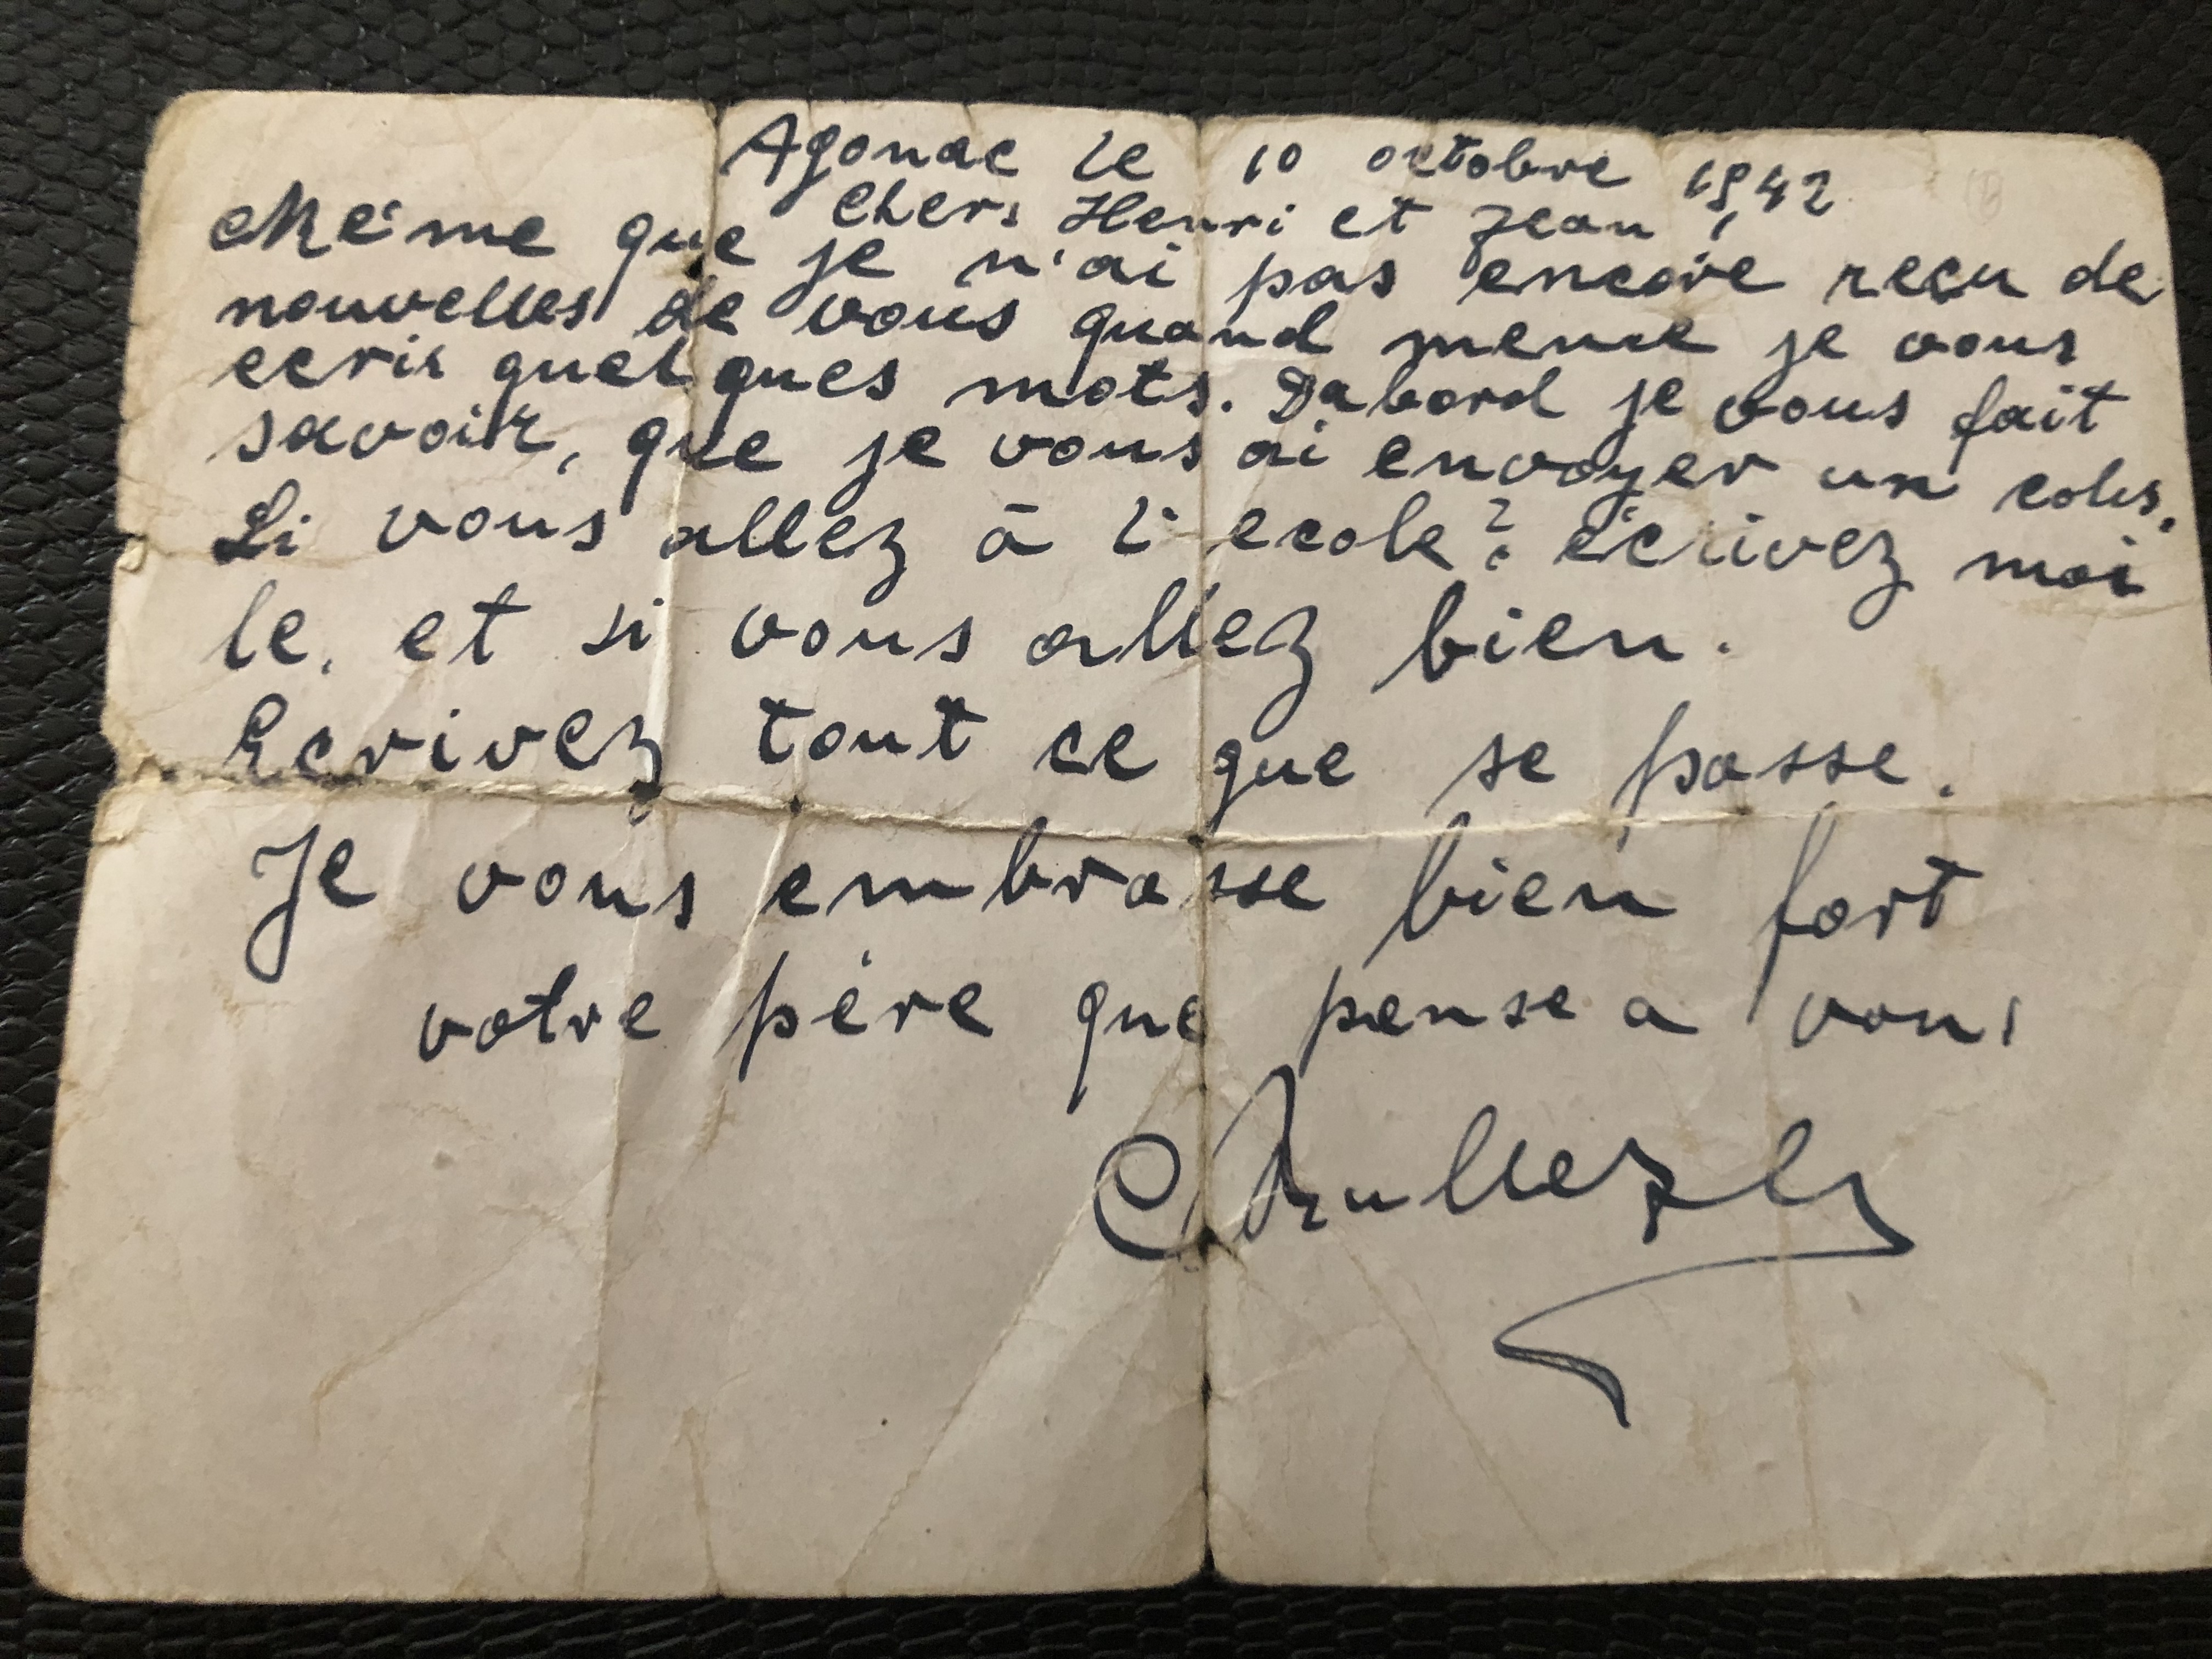 Agonac le 10 octobre 1942
Chers Henri et Jean,
Même que je n'ai pas encore reçu de
nouvelles de vous quand meme je vous
ecris quelques mots. Dabord je vous fait
savoir, que je vous ai envoyer un colis.
Si vous allez à l'ecole? écrivez moi
le, et si vous allez bien.
Ecrivez tout ce que se passe.
Je vous embrasse bien fort
votre père que pense a vous